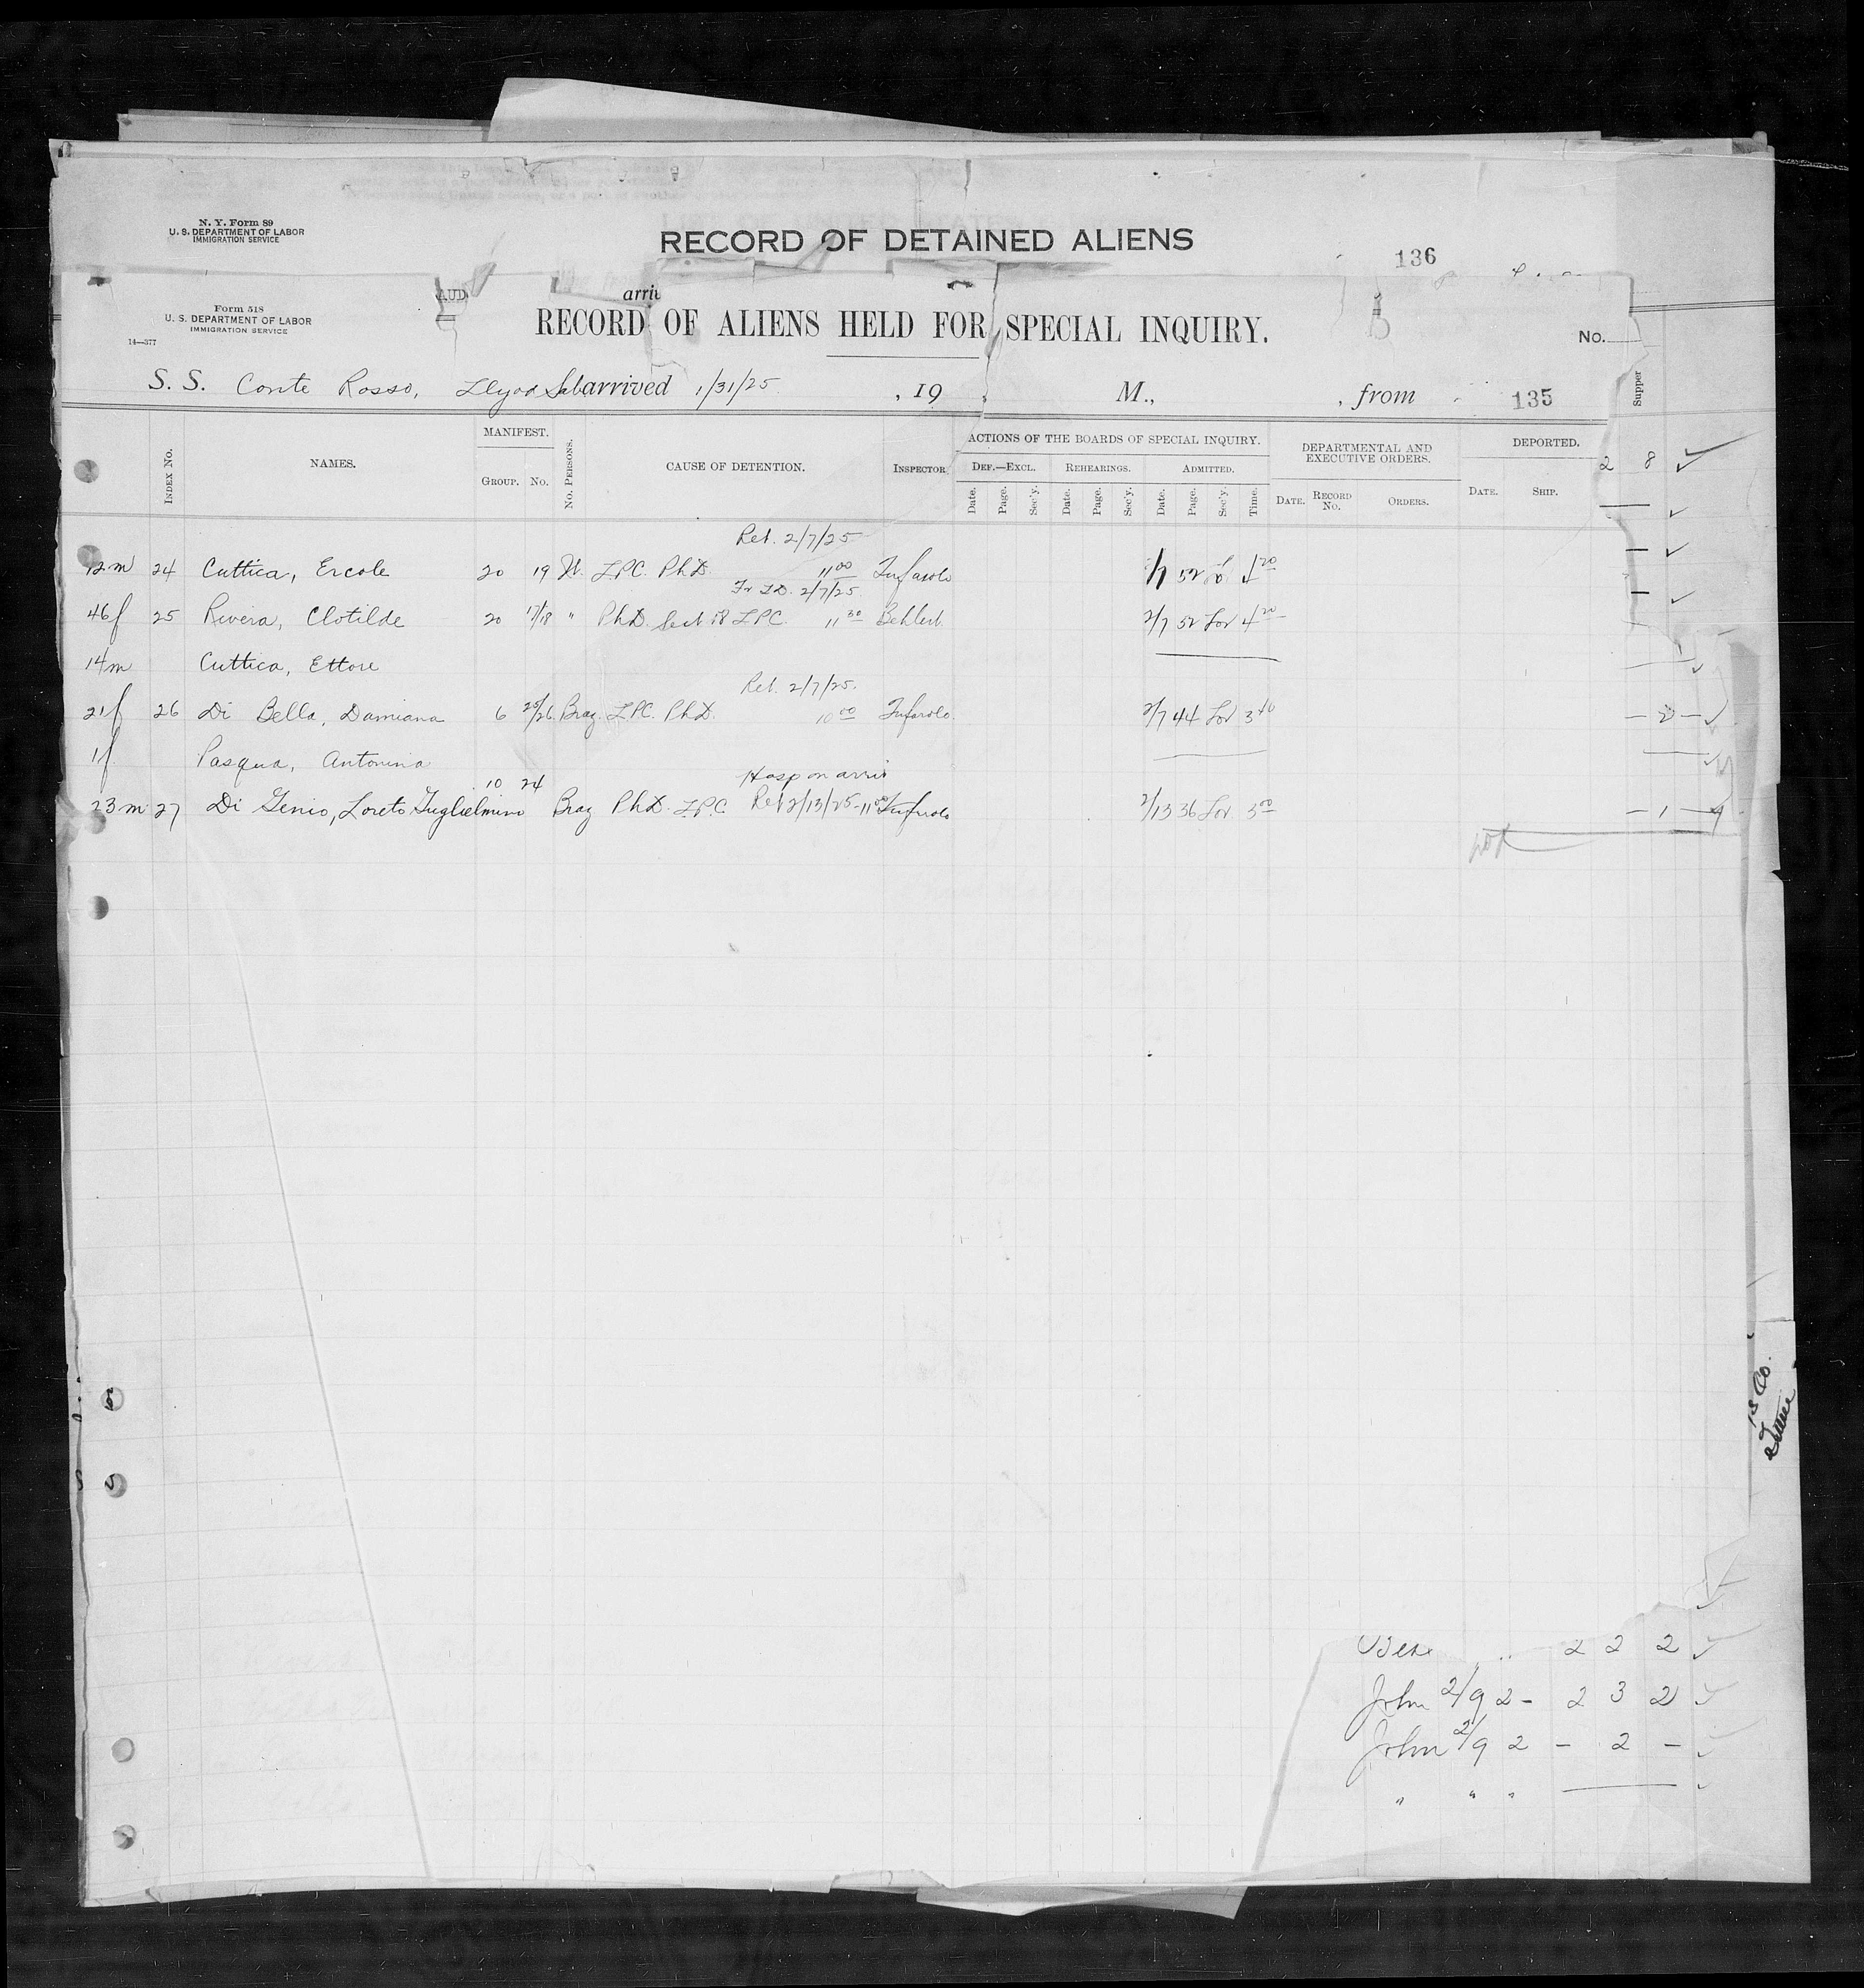 N. Y. Form 89
U. S. DEPARTMENT OF LABOR
IMMIGRATION SERVICE
RECORD OF DETAINED ALIENS
136
Form 518
U. S. DEPARTMENT OF LABOR
IMMIGRATION SERVICE
14—377
AUD
arri
RECORD OF ALIENS HELD FOR SPECIAL INQUIRY.
No.
S. S. Conte Rosso, arrived 1/31/25 , 19 , M., , from 135
Supper
INDEX No. NAMES. MANIFEST. GROUP. No. No. PERSONS. CAUSE OF DETENTION. INSPECTOR
ACTIONS OF THE BOARDS OF SPECIAL INQUIRY. DEF.—EXCL. REHEARINGS. ADMITTED.
Date. Page. Sec'y. Date. Page. Sec'y. Date. Page. Sec'y. Time.
DEPARTMENTAL AND EXECUTIVE ORDERS. DATE. RECORD No. ORDERS.
DEPORTED. DATE. SHIP.
2 8 ✓
Ret. 2/7/25
12m 24 Cuttica, Ercole 20 19 It. LPC. PhD. 11 00 2/7 52 4 20
2/7/25
46f 25 Rivera, Clotilde 20 17/18 " PhD. Sect 18 LPC. 11 30 2/7 52 Lov 4 20
14m Cuttica, Ettore
Ret. 2/7/25.
21f 26 Di Bella, Damiana 6 25/26 Braz. LPC. PhD. 10 00 2/7 44 Lov 3 40 — 2 — ✓
1f Pasqua, Antonina
10 24 Hosp on arriv
23m 27 Di Genio, Loreto Guglielmino Braz PhD. LPC Ret 2/13/25 - 11 00 2/13 36 Lov. 3 00 — 1 —
Co.
2 2 2 ✓
John 2/9 2 - 2 3 2 ✓
John 2/9 2 - 2 - ✓
" " "